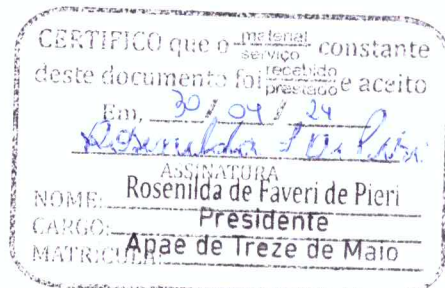 CERTIFICO que o material serviço constante
deste documento foi recebido prestado e aceito
Em, 30 / 04 / 24
Rosenilda
ASSINATURA
NOME: Rosenilda de Faveri de Pieri
CARGO: Presidente
MATRICULA: Apae de Treze de Maio